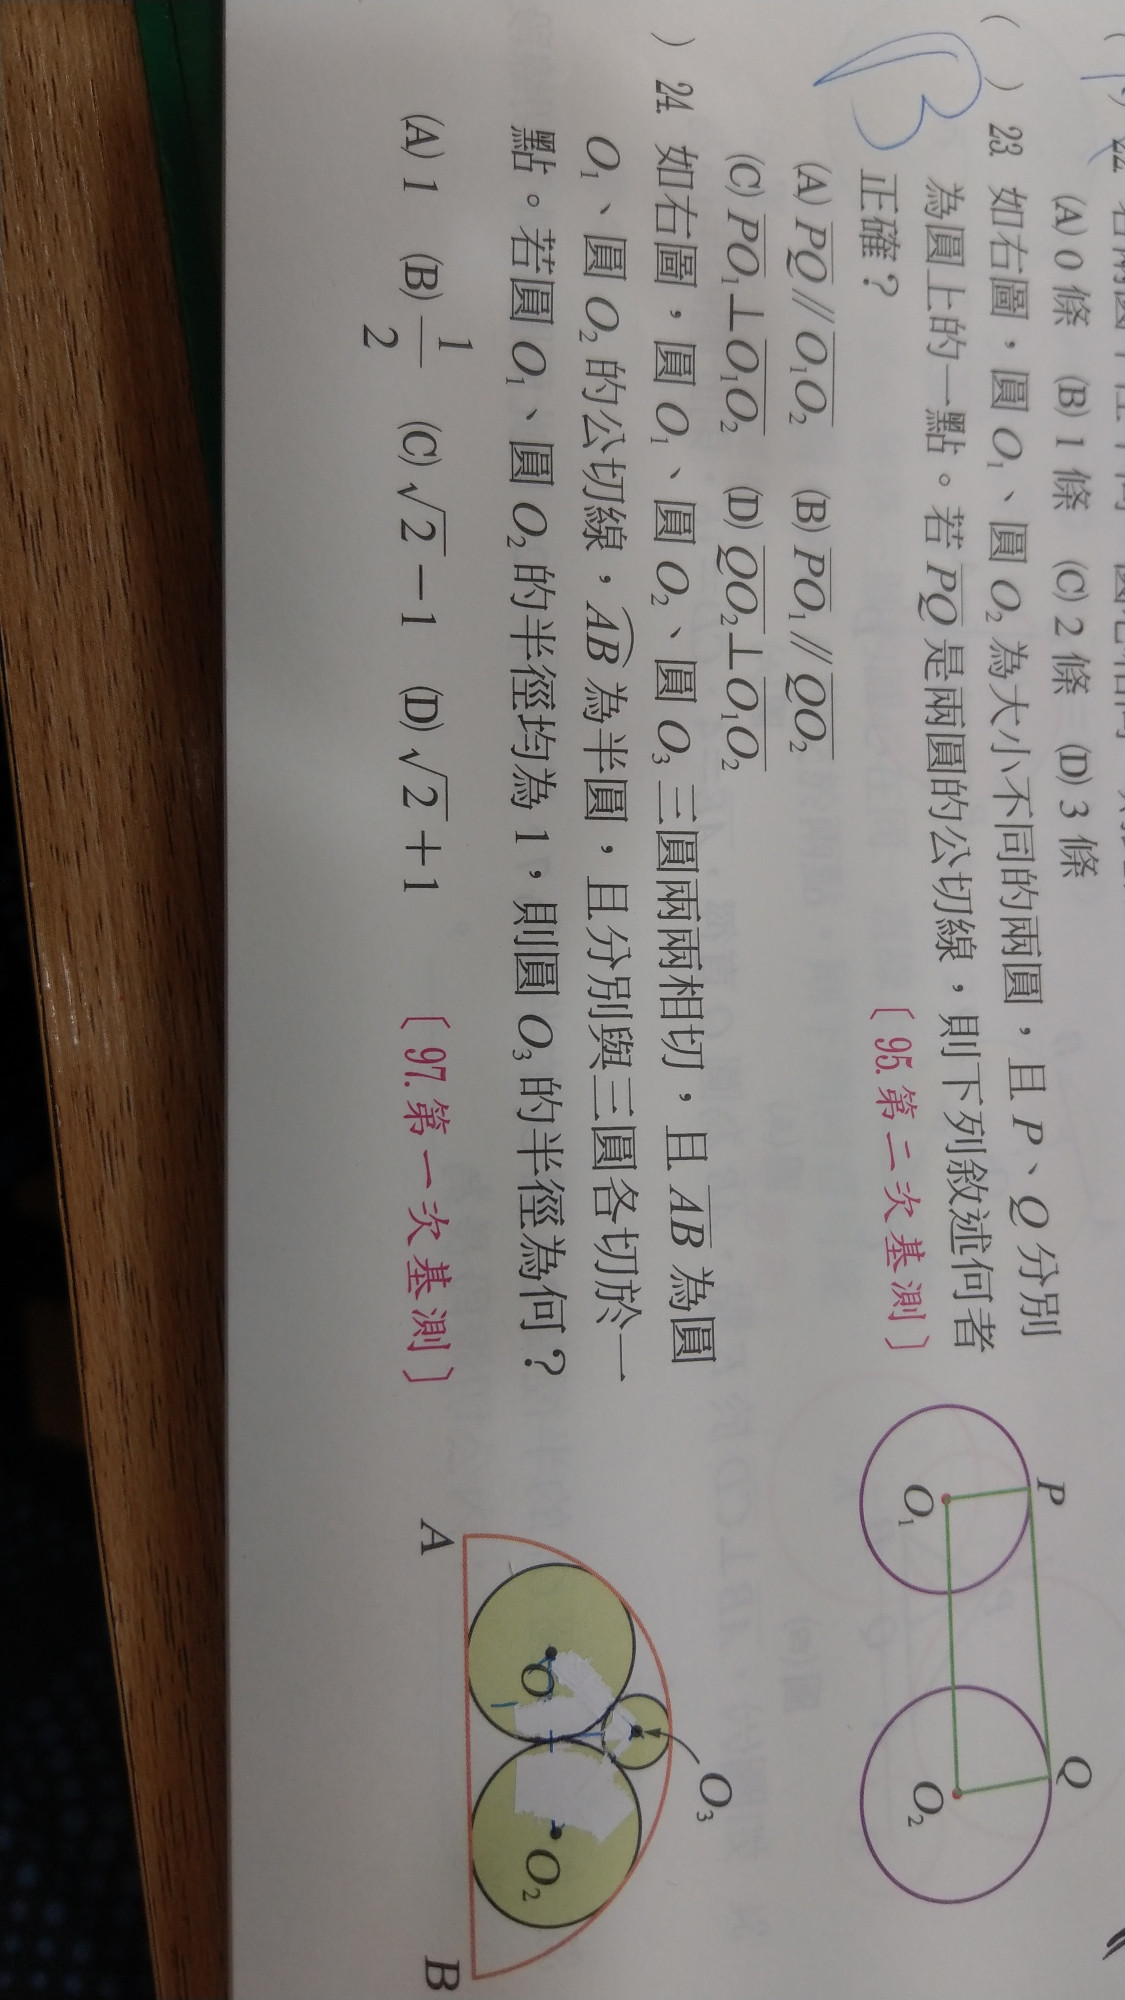 (A) 0 條 (B) 1 條 (C) 2 條 (D) 3 條
( ) 23. 如右圖,圓 O₁、圓 O₂ 為大小不同的兩圓,且 P、Q 分別
為圓上的一點。若 PQ 是兩圓的公切線,則下列敘述何者
正確? 〔95.第二次基測〕
B
(A) PQ // O₁O₂ (B) PO₁ // QO₂
(C) PO₁⊥O₁O₂ (D) QO₂⊥O₁O₂
P
Q
O₁
O₂
) 24. 如右圖,圓 O₁、圓 O₂、圓 O₃ 三圓兩兩相切,且 AB 為圓
O₁、圓 O₂ 的公切線,AB 為半圓,且分別與三圓各切於一
點。若圓 O₁、圓 O₂ 的半徑均為 1,則圓 O₃ 的半徑為何?
(A) 1 (B) 1/2 (C) √2 − 1 (D) √2 + 1 〔97.第一次基測〕
O₃
O
O₂
A
B